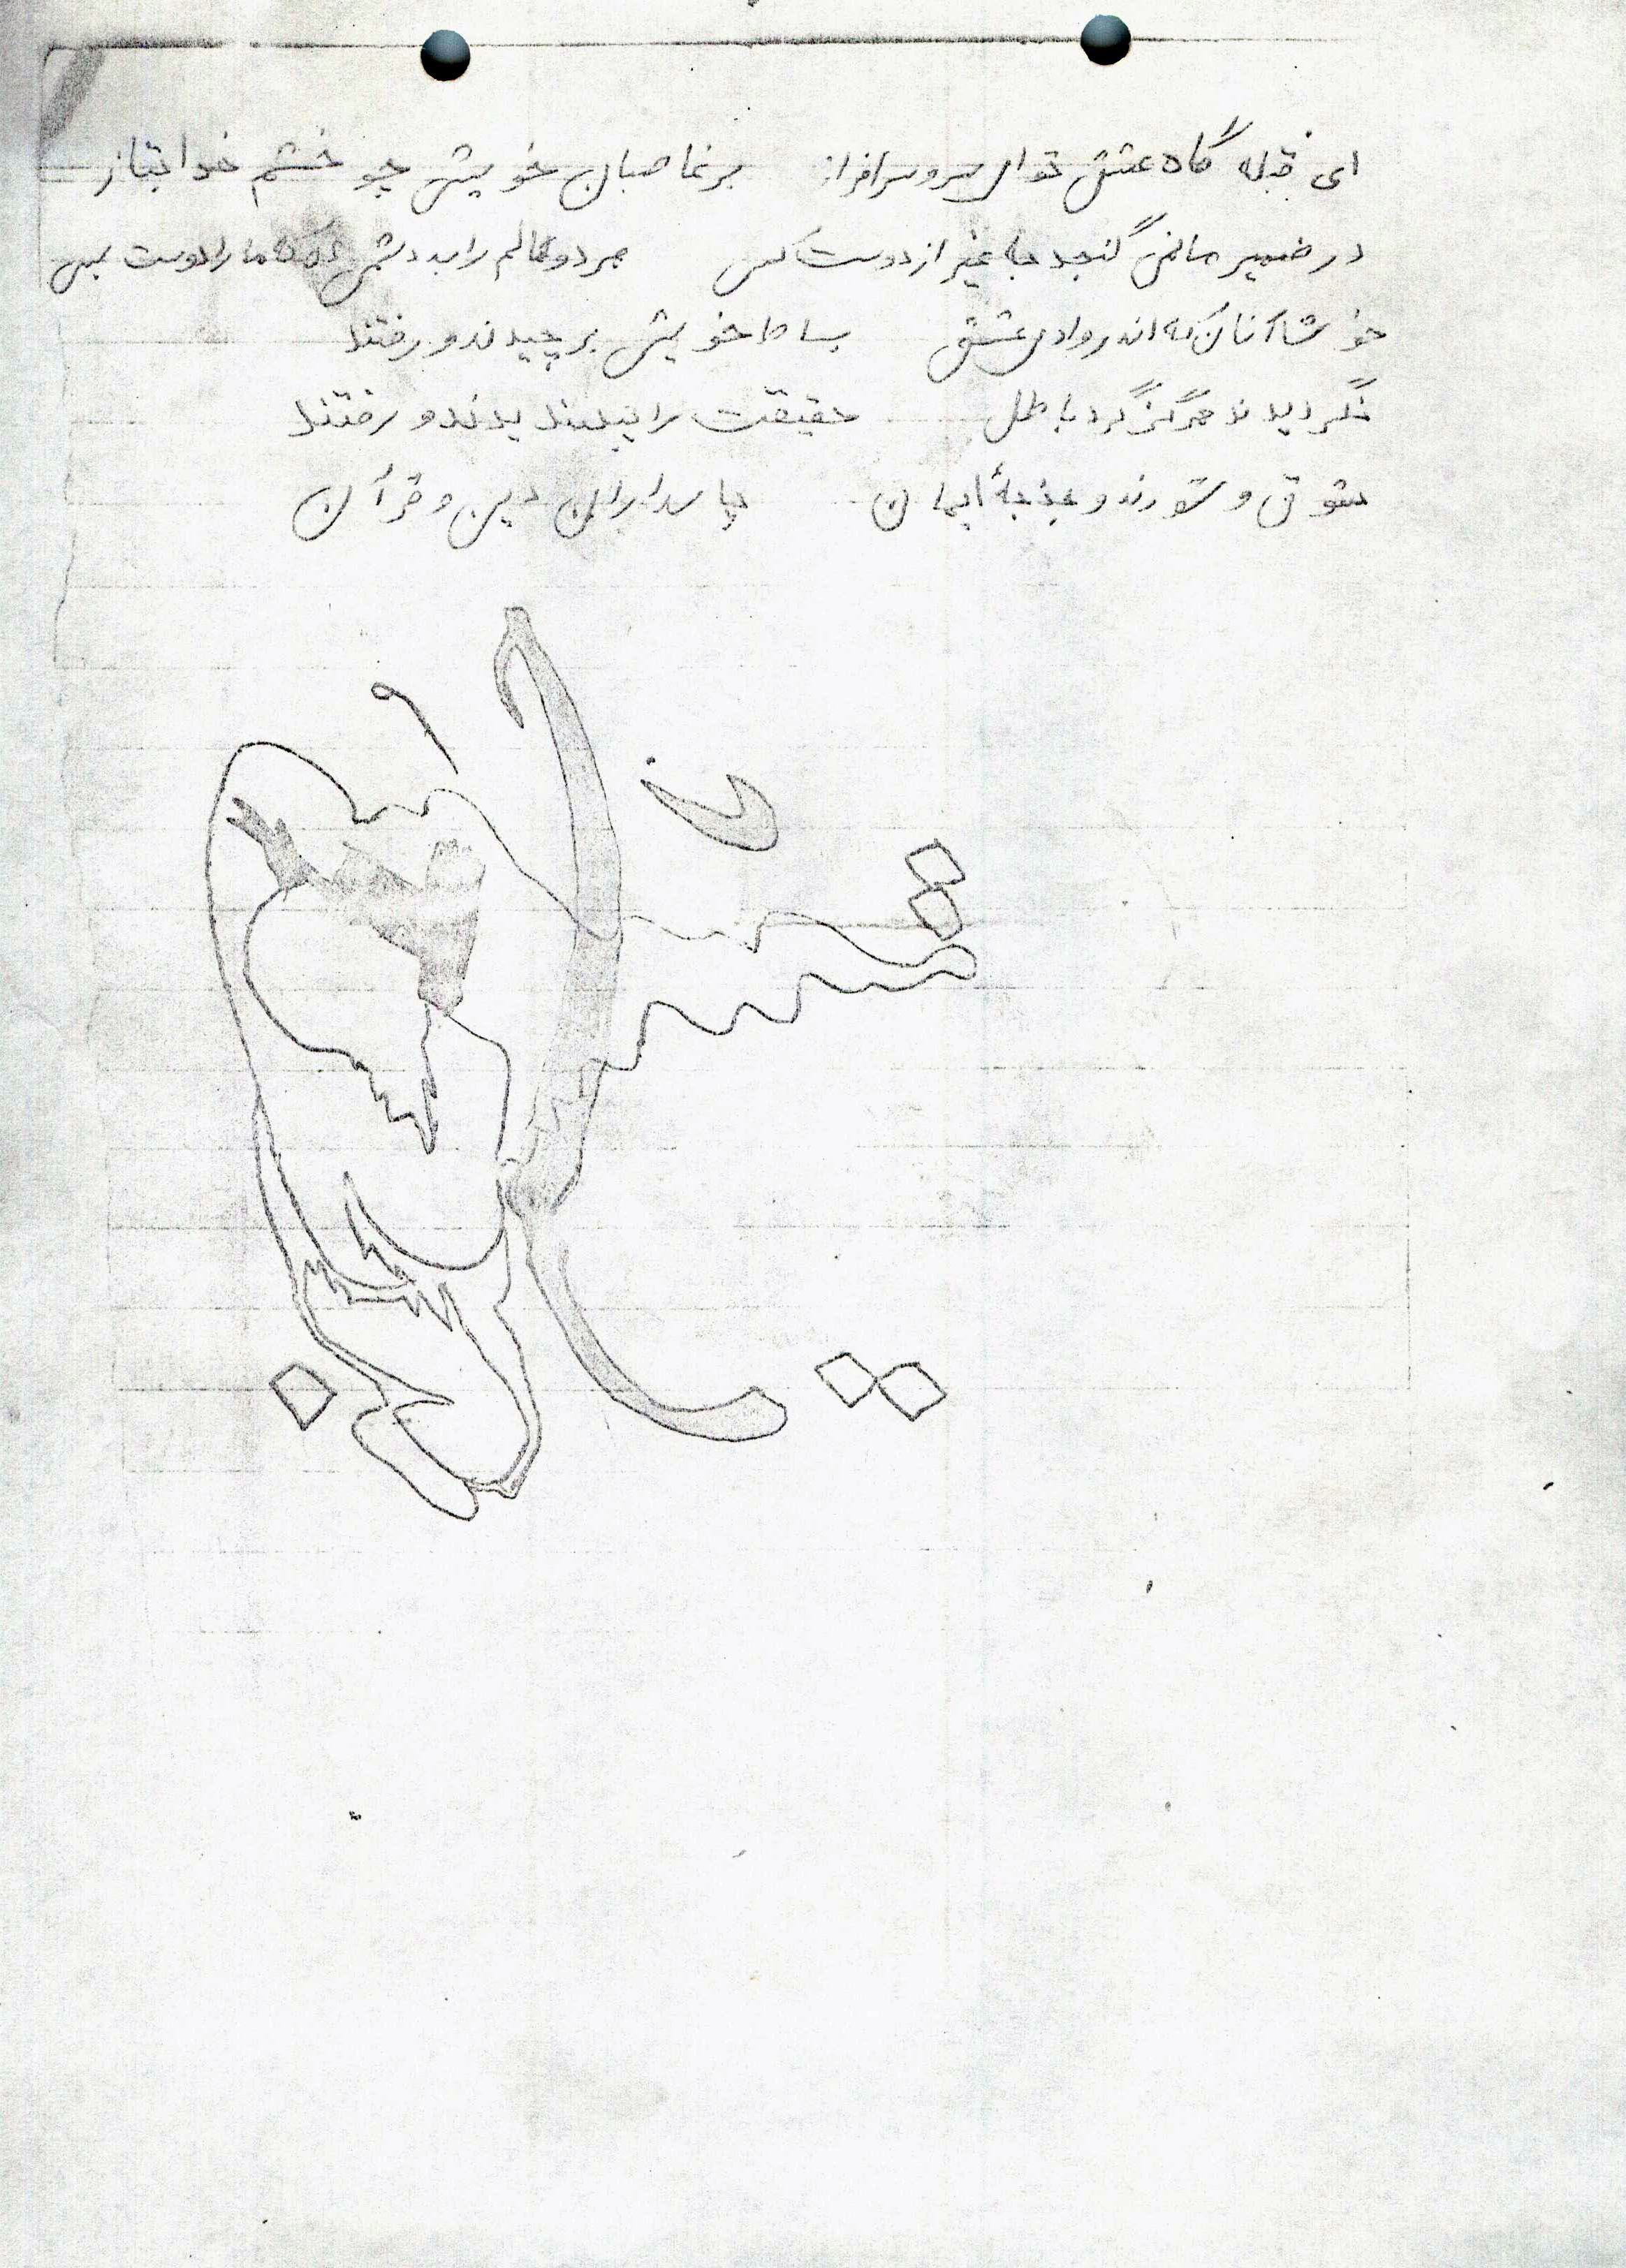 ای قبله گاه عشق تو ای سرو سرافراز برغاصبان خویش چو خشم خدا بتاز
در ضمیر ما نمی گنجد به غیر از دوست کس هر دو عالم را به دشمن ده که ما را دوست بس
خوشا آنان که اندر وادی عشق بساط خویش برچیدند و رفتند
نگردیدند هرگز گرد باطل حقیقت را پسندیدند و رفتند
شوق و شورند و جذبهٔ ایمان پاسداران دین و قرآن